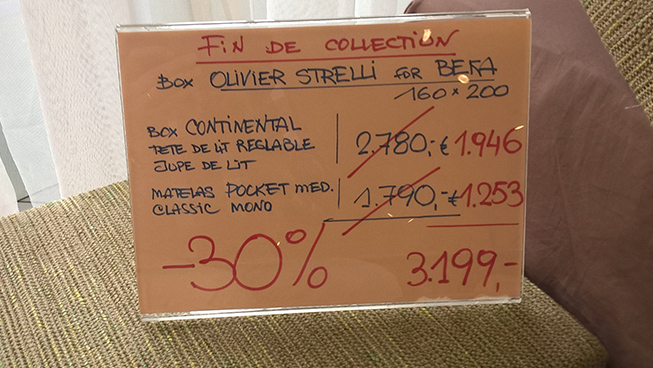 FIN DE COLLECTION
BOX OLIVIER STRELLI FOR BEKA
160 x 200
BOX CONTINENTAL
TETE DE LIT REGLABLE
JUPE DE LIT
2.780,- € 1.946
MATELAS POCKET MED.
CLASSIC MONO
1.790,- € 1.253
-30% 3.199,-